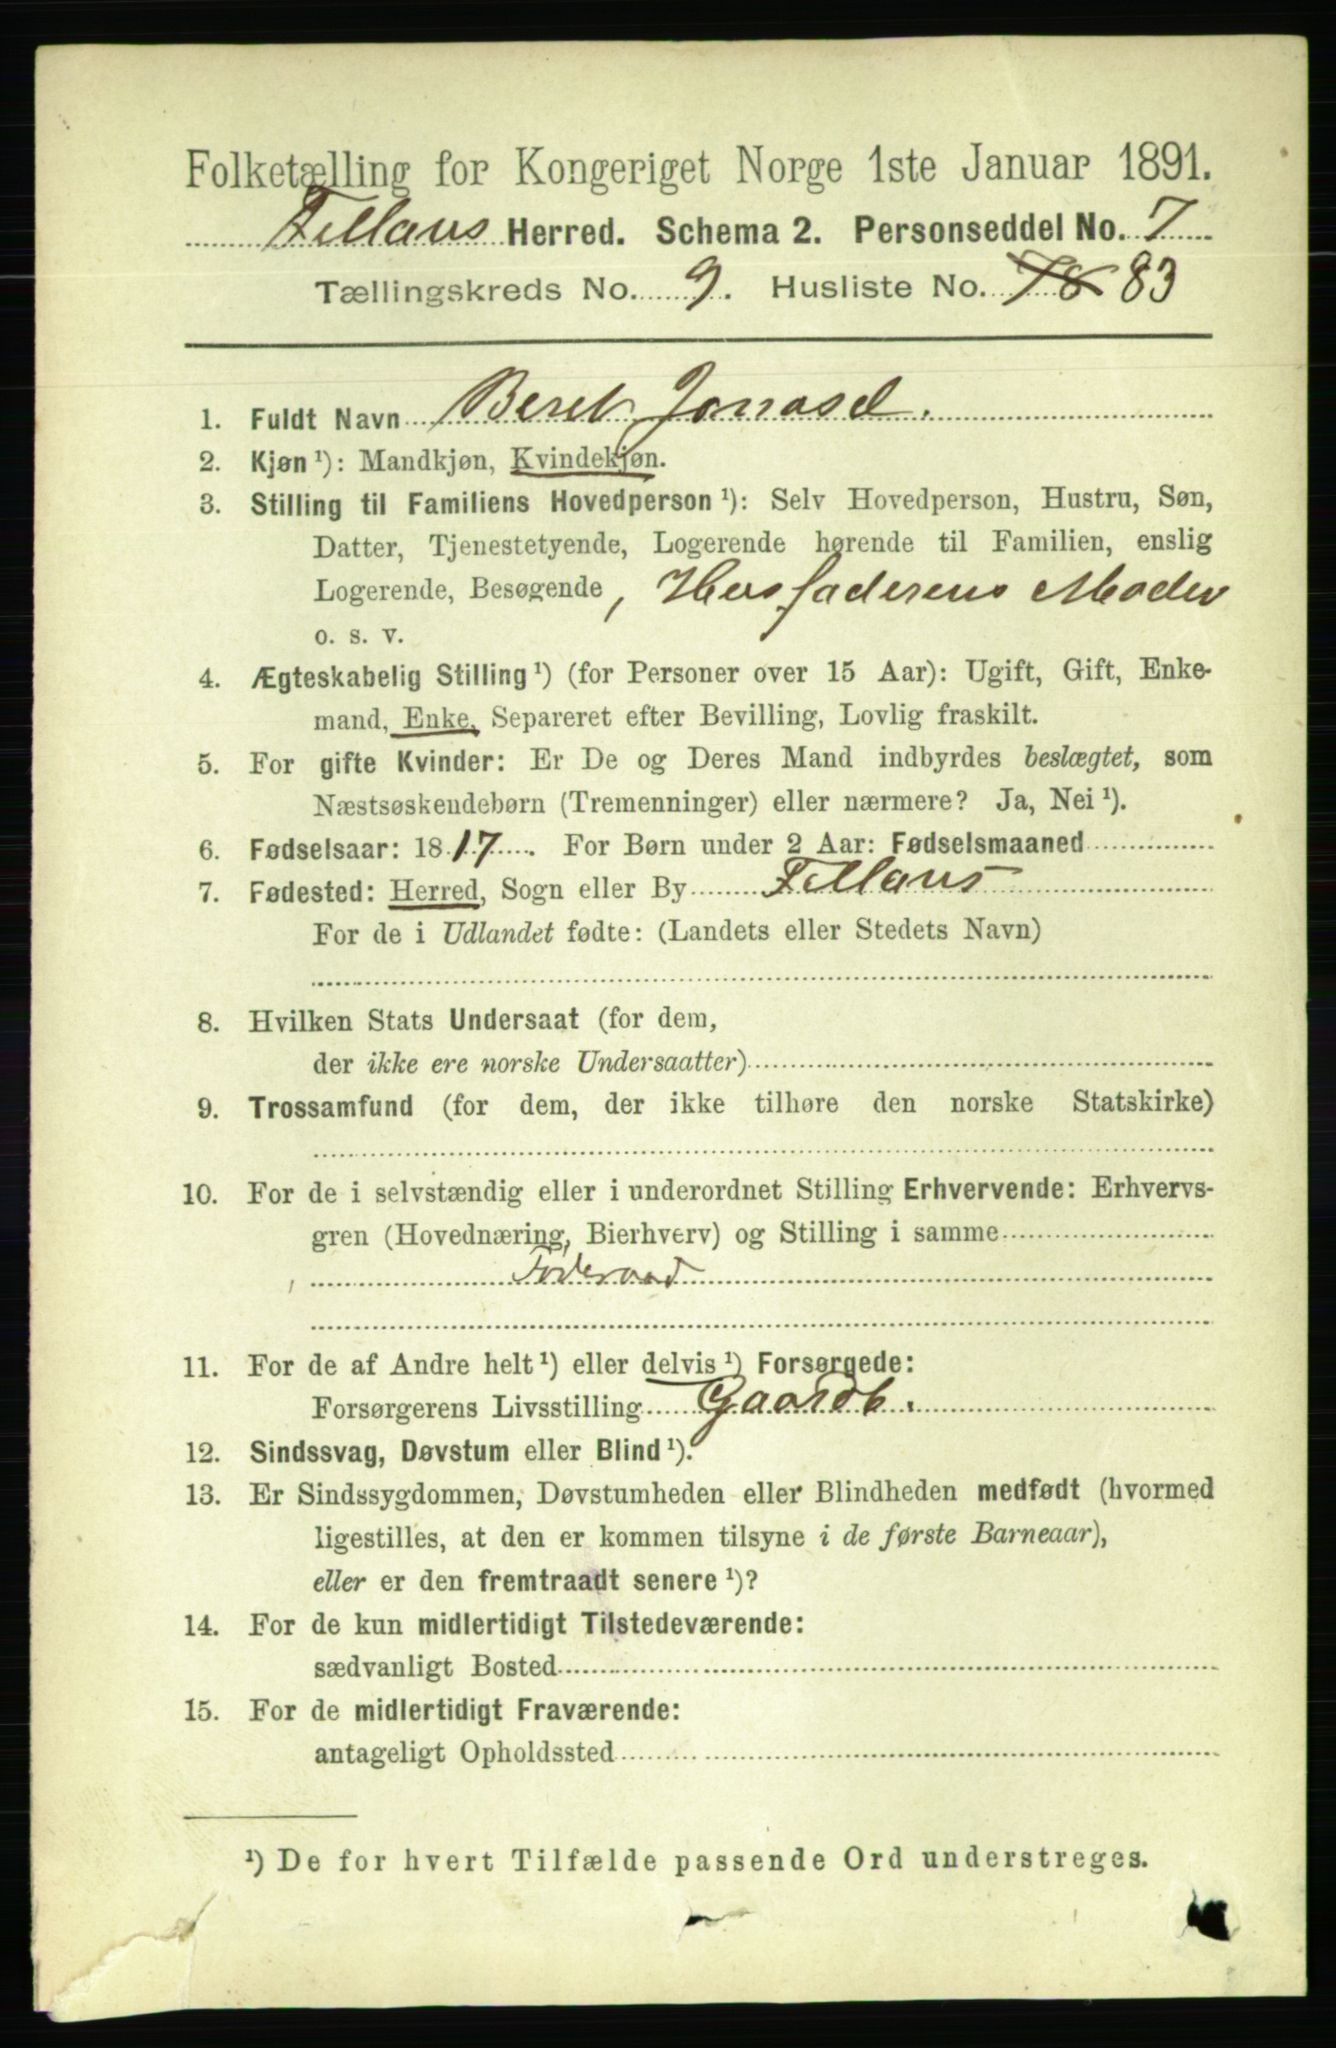 Folketælling for Kongeriget Norge 1ste Januar 1891.
Fillans Herred. Schema 2. Personseddel No. 7
Tællingskreds No. 9. Husliste No. 78 83
1. Fuldt Navn Beret Jonasd.
2. Kjøn ¹): Mandkjøn, Kvindekjøn.
3. Stilling til Familiens Hovedperson ¹): Selv Hovedperson, Hustru, Søn,
Datter, Tjenestetyende, Logerende hørende til Familien, enslig
Logerende, Besøgende, Husfaderens Moder
o. s. v.
4. Ægteskabelig Stilling ¹) (for Personer over 15 Aar): Ugift, Gift, Enke-
mand, Enke, Separeret efter Bevilling, Lovlig fraskilt.
5. For gifte Kvinder: Er De og Deres Mand indbyrdes beslægtet, som
Næstsøskendebørn (Tremenninger) eller nærmere? Ja, Nei ¹).
6. Fødselsaar: 1817. For Børn under 2 Aar: Fødselsmaaned
7. Fødested: Herred, Sogn eller By Fillans
For de i Udlandet fødte: (Landets eller Stedets Navn)
8. Hvilken Stats Undersaat (for dem,
der ikke ere norske Undersaatter)
9. Trossamfund (for dem, der ikke tilhøre den norske Statskirke)
10. For de i selvstændig eller i underordnet Stilling Erhvervende: Erhvervs-
gren (Hovednæring, Bierhverv) og Stilling i samme
Foderaad
11. For de af Andre helt ¹) eller delvis ¹) Forsørgede:
Forsørgerens Livsstilling Gaardb.
12. Sindssvag, Døvstum eller Blind ¹).
13. Er Sindssygdommen, Døvstumheden eller Blindheden medfødt (hvormed
ligestilles, at den er kommen tilsyne i de første Barneaar),
eller er den fremtraadt senere ¹)?
14. For de kun midlertidigt Tilstedeværende:
sædvanligt Bosted
15. For de midlertidigt Fraværende:
antageligt Opholdssted
¹) De for hvert Tilfælde passende Ord understreges.